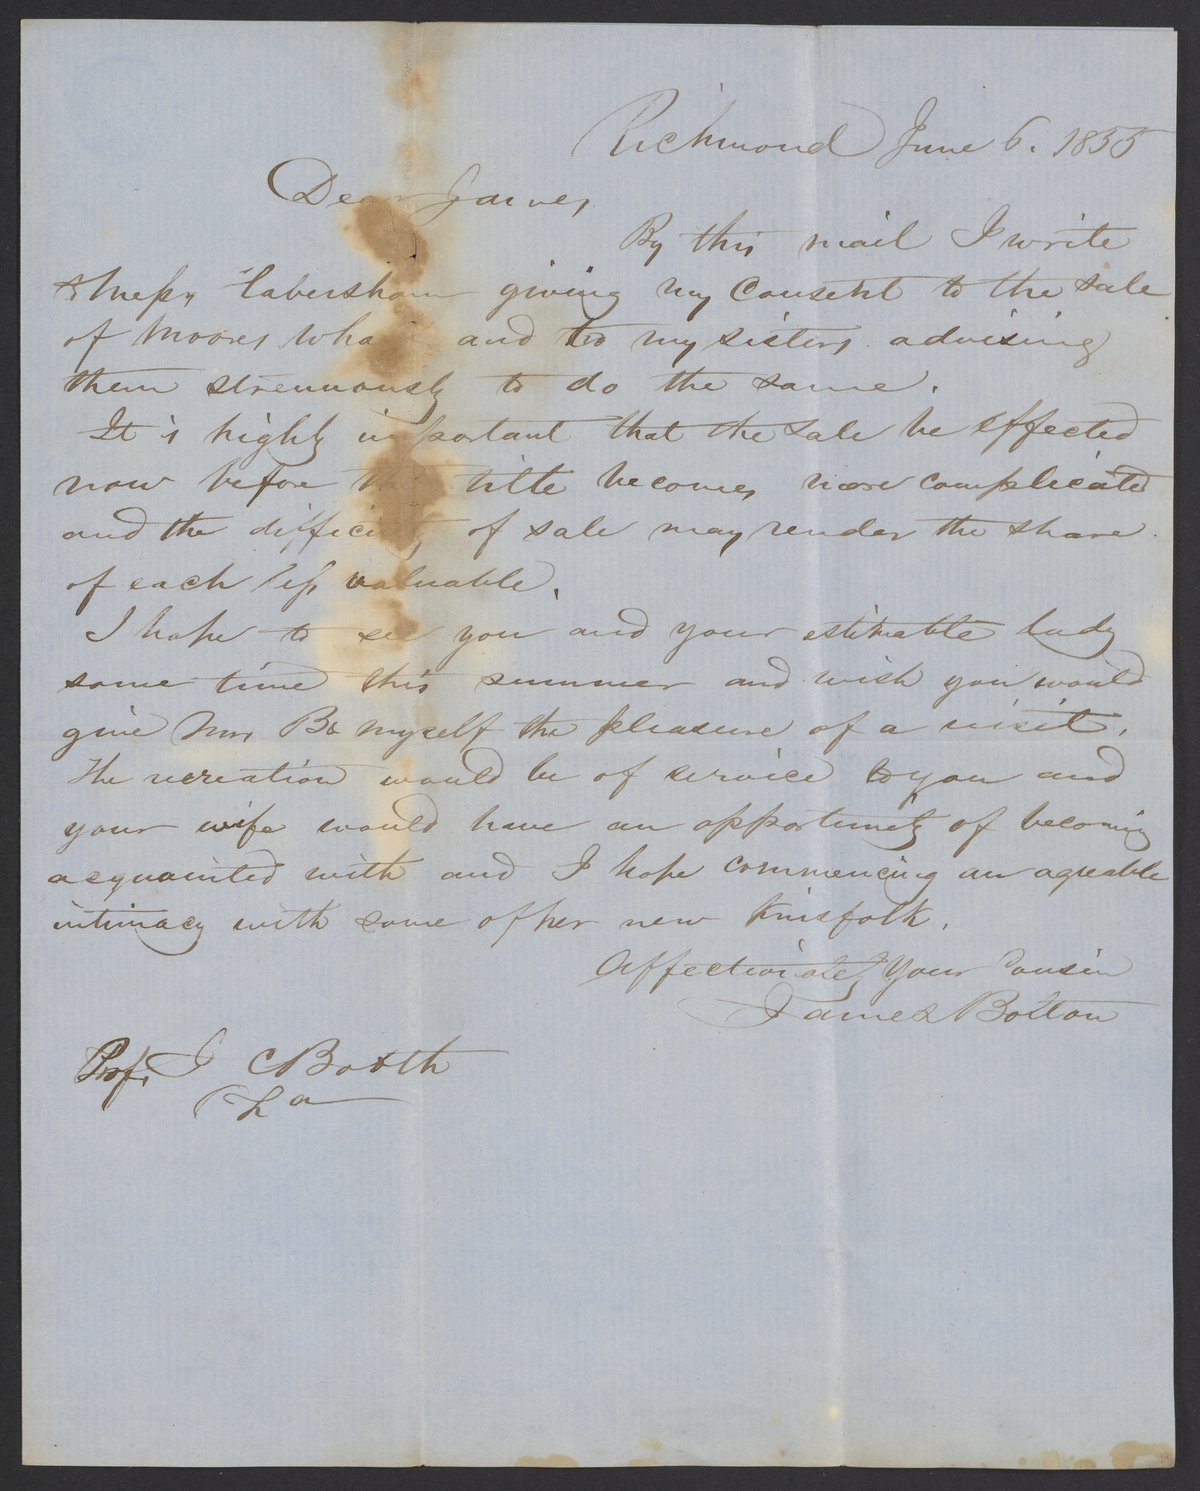 Richmond June 6. 1855
Dear James
By this mail I write
to Messrs Habersham giving my consent to the sale
of Moores Wha and to my sisters advising
them strenuously to do the same.
It is highly important that the sale be effected
now before the title becomes more complicated
and the difficulty of sale may render the share
of each less valuable.
I hope to see you and your estimable lady
some time this summer and wish you would
give Mrs B & myself the pleasure of a visit.
The recreation would be of service to you and
your wife would have an opportunity of becoming
acquainted with and I hope commencing an agreable
intimacy with some of her new Kinsfolk.
Affectionately Your Cousin
James Bolton
Prof. J C Booth